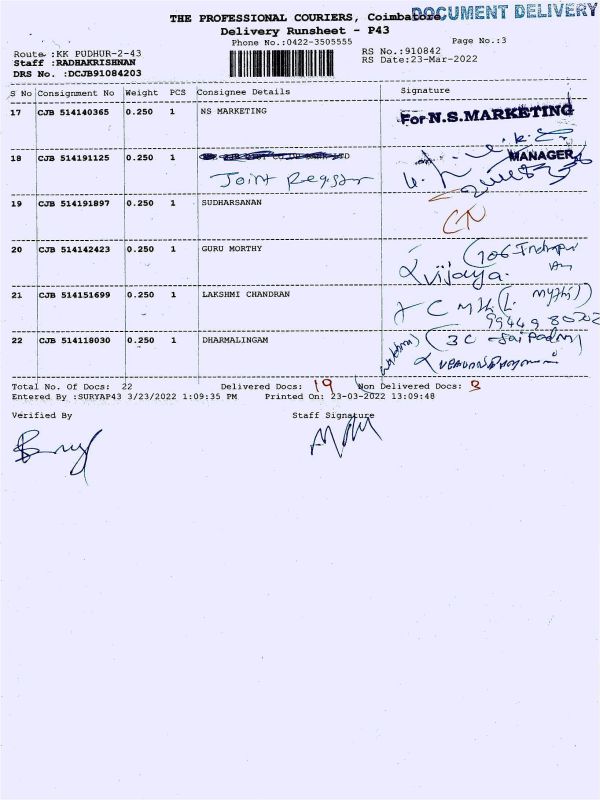 THE PROFESSIONAL COURIERS, Coimbatore
DOCUMENT DELIVERY
Delivery Runsheet - P43
Phone No.:0422-3505555 Page No.:3
Route :KK PUDHUR-2-43 RS No.:910842
Staff :RADHAKRISHNAN RS Date:23-Mar-2022
DRS No. :DCJB91084203
S No Consignment No Weight PCS Consignee Details Signature
17 CJB 514140365 0.250 1 NS MARKETING For N.S.MARKETING
MANAGER
18 CJB 514191125 0.250 1
Joint Registrar
19 CJB 514191897 0.250 1 SUDHARSANAN
20 CJB 514142423 0.250 1 GURU MORTHY
106
Vijaya.
21 CJB 514151699 0.250 1 LAKSHMI CHANDRAN
22 CJB 514118030 0.250 1 DHARMALINGAM
3C
Total No. Of Docs: 22 Delivered Docs: 19 Non Delivered Docs: 3
Entered By :SURYAP43 3/23/2022 1:09:35 PM Printed On: 23-03-2022 13:09:48
Verified By Staff Signature